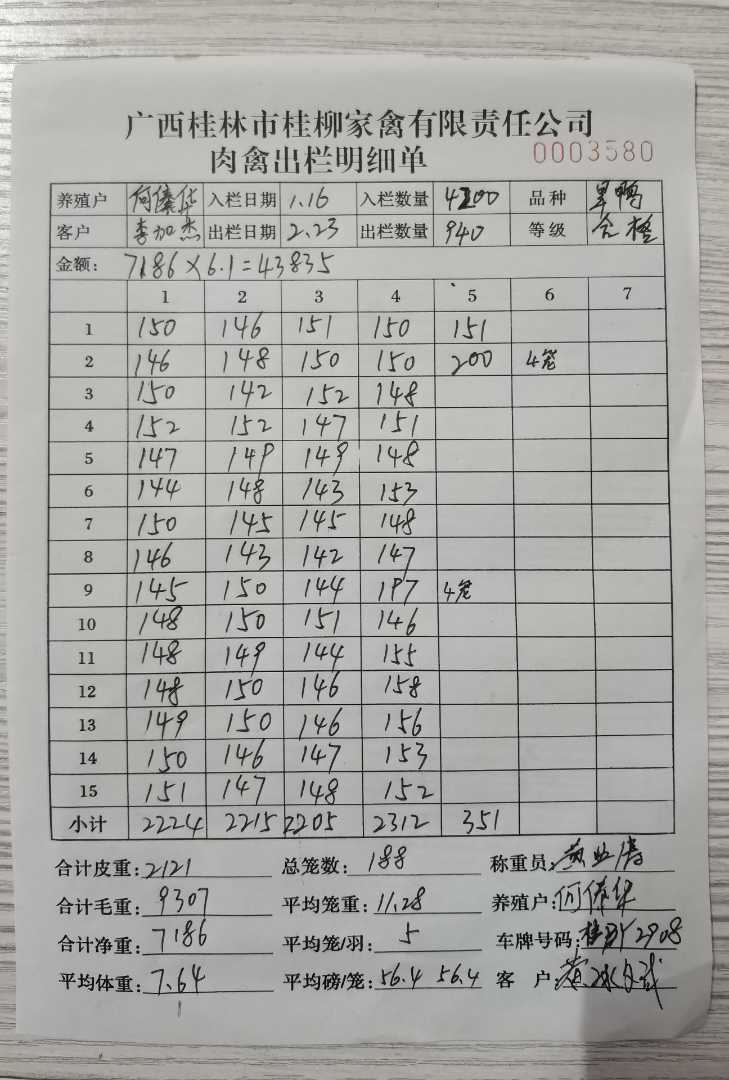 广西桂林市桂柳家禽有限责任公司
肉禽出栏明细单 0003580
养殖户 何傣华 入栏日期 1.16 入栏数量 4200 品种 旱鸭
客户 李加杰 出栏日期 2.23 出栏数量 940 等级 合格
金额: 7186×6.1=43835
1 2 3 4 5 6 7
1 150 146 151 150 151
2 146 148 150 150 200 4笼
3 150 142 152 148
4 152 152 147 151
5 147 149 149 148
6 144 148 143 153
7 150 145 145 148
8 146 143 142 147
9 145 150 144 197 4笼
10 148 150 151 146
11 148 149 144 155
12 148 150 146 158
13 149 150 146 156
14 150 146 147 153
15 151 147 148 152
小计 2224 2215 2205 2312 351
合计皮重: 2121 总笼数: 188 称重员:
合计毛重: 9307 平均笼重: 11.28 养殖户: 何傣华
合计净重: 7186 平均笼/羽: 5 车牌号码:
平均体重: 7.64 平均磅/笼: 56.4 56.4 客 户: